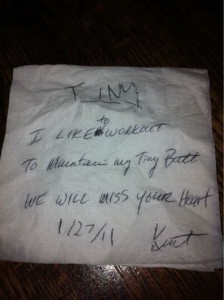 TINY
to
I LIKE WORKOUT
To Maintain my Tiny Butt
WE WILL MISS YOUR Heart
1/27/11 Kent